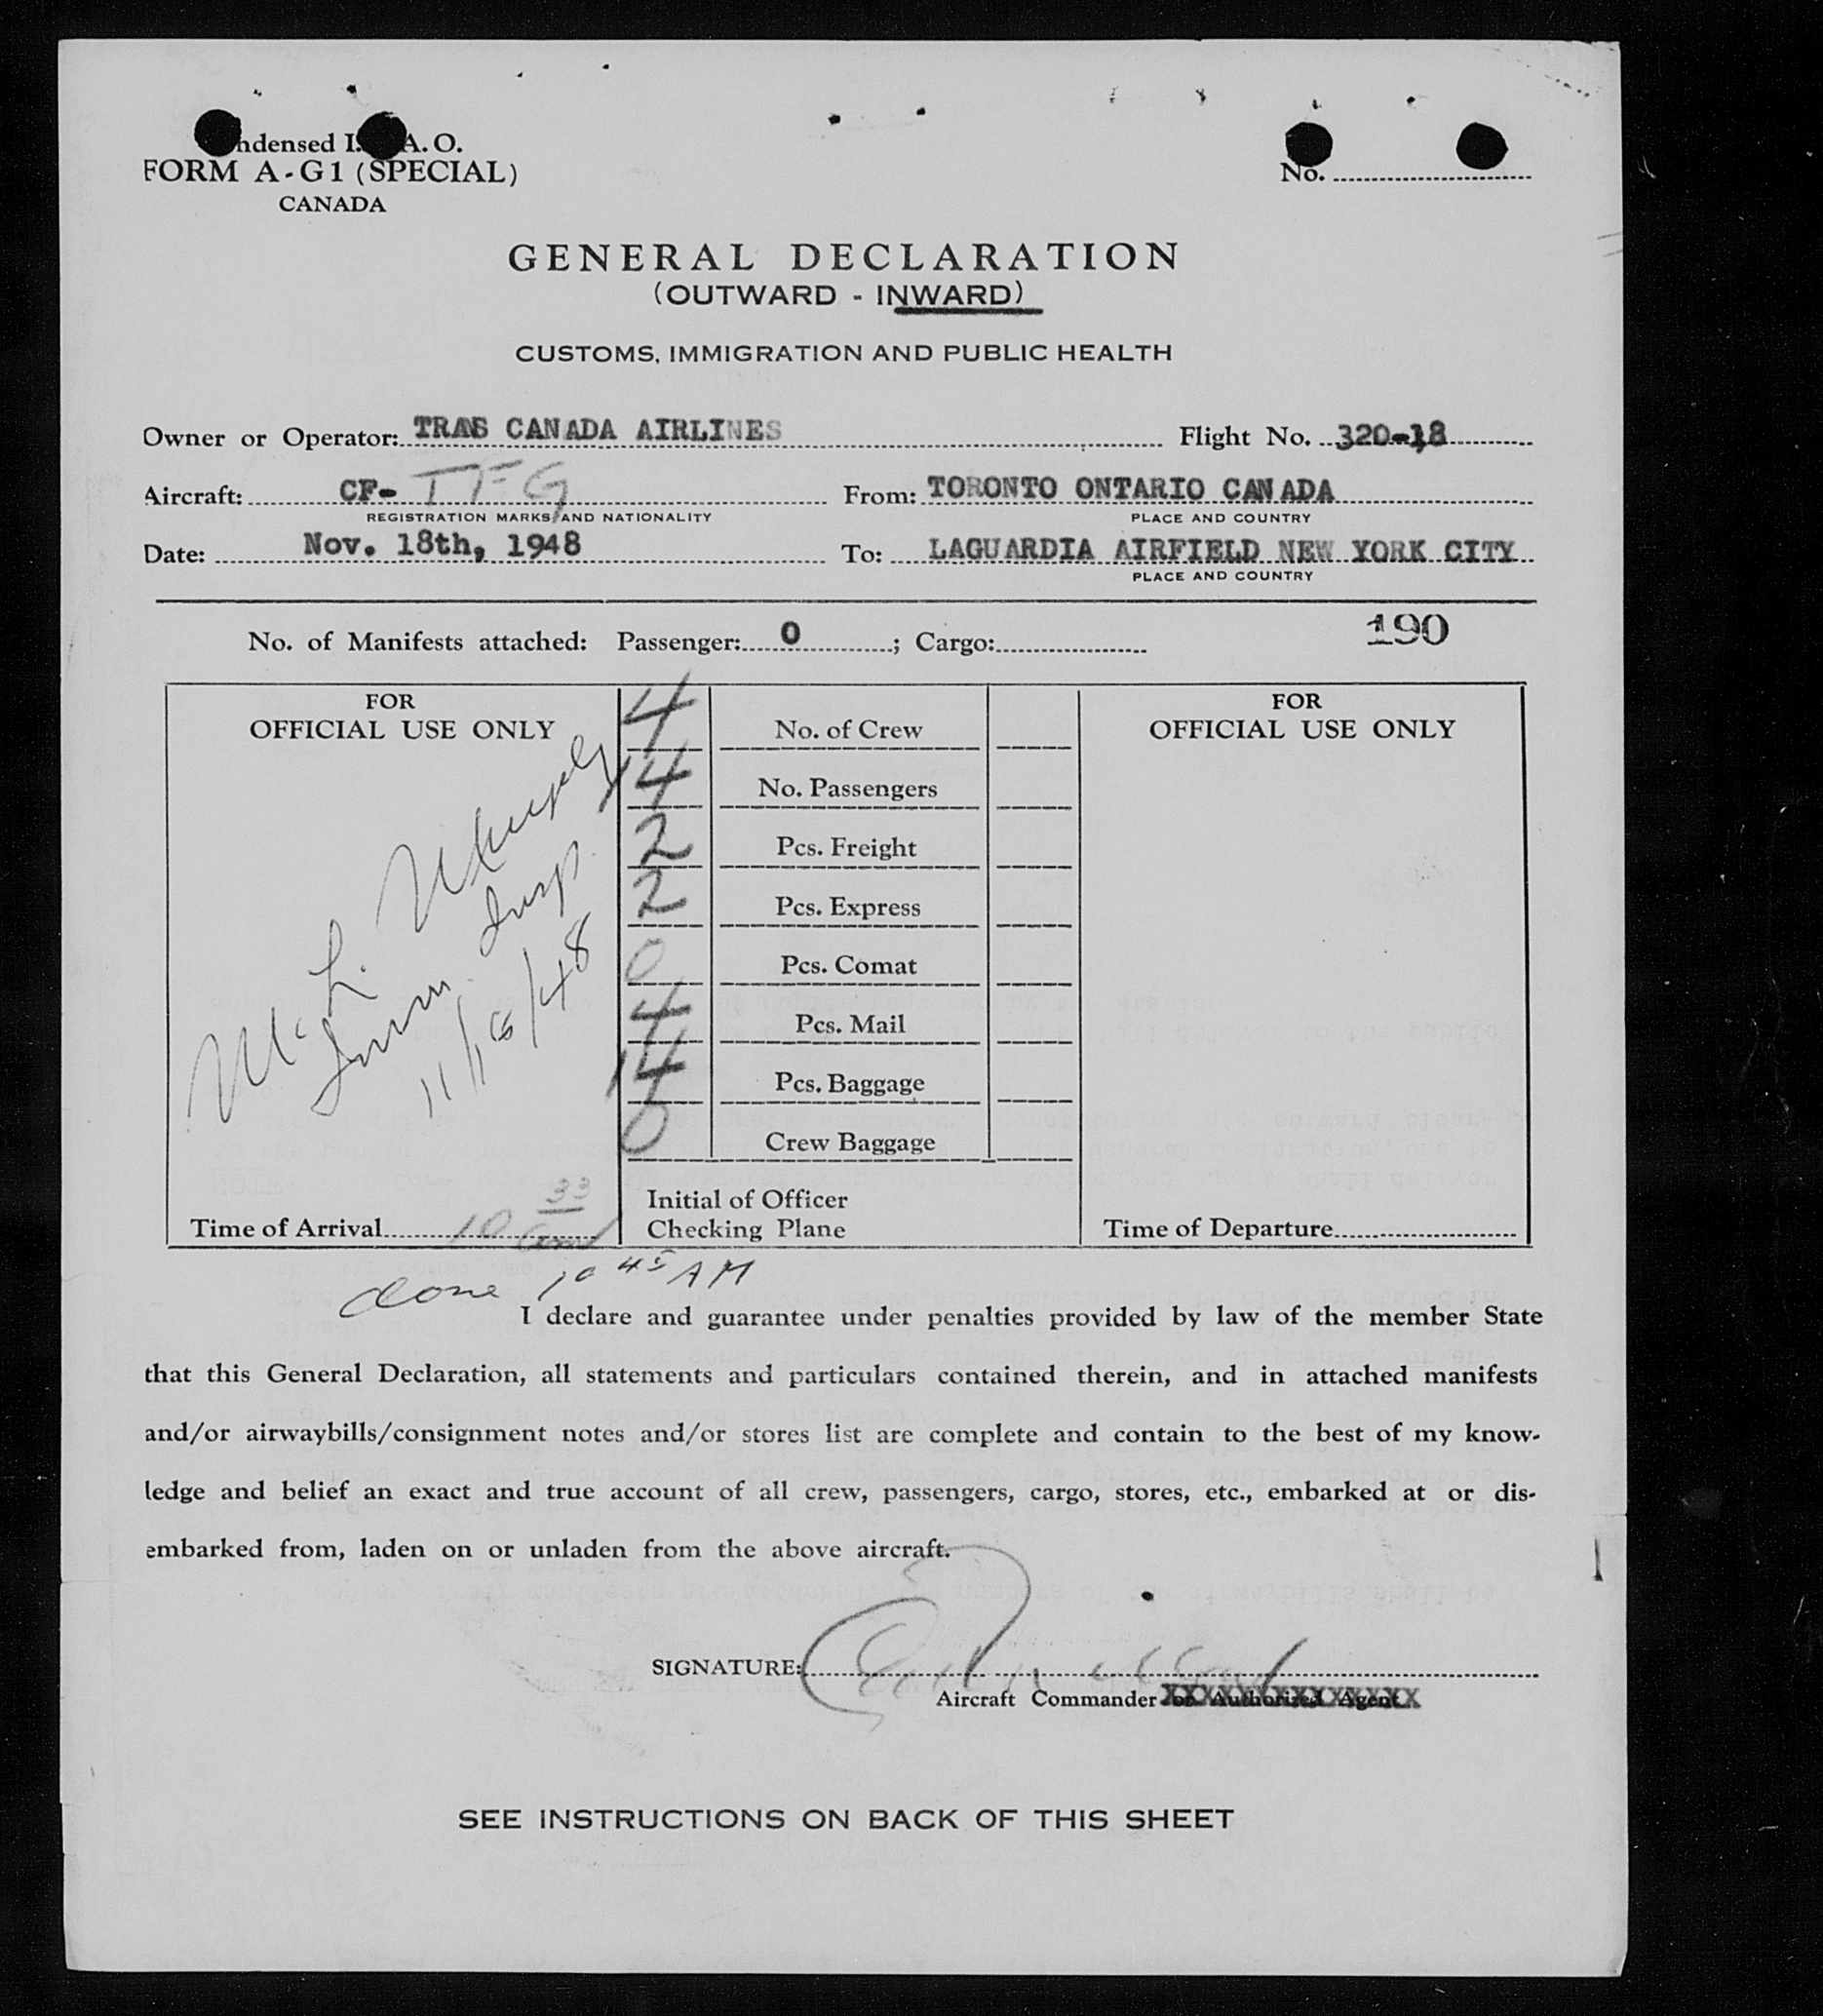 ndensed I. A. O.
FORM A-G1 (SPECIAL)
CANADA
No.
GENERAL DECLARATION
(OUTWARD - INWARD)
CUSTOMS, IMMIGRATION AND PUBLIC HEALTH
Owner or Operator: TRAS CANADA AIRLINES Flight No. 320-18
Aircraft: CF- TFG From: TORONTO ONTARIO CANADA
REGISTRATION MARKS AND NATIONALITY PLACE AND COUNTRY
Date: Nov. 18th, 1948 To: LAGUARDIA AIRFIELD NEW YORK CITY
PLACE AND COUNTRY
No. of Manifests attached: Passenger: 0 ; Cargo: 190
FOR
OFFICIAL USE ONLY
Mc L. Murphy
Imm. Insp.
11/18/48
Time of Arrival 10 33 am
4 No. of Crew
14 No. Passengers
2 Pcs. Freight
2 Pcs. Express
0 Pcs. Comat
4 Pcs. Mail
14 Pcs. Baggage
0 Crew Baggage
Initial of Officer
Checking Plane
FOR
OFFICIAL USE ONLY
Time of Departure
done 10 45 AM
I declare and guarantee under penalties provided by law of the member State
that this General Declaration, all statements and particulars contained therein, and in attached manifests
and/or airwaybills/consignment notes and/or stores list are complete and contain to the best of my know-
ledge and belief an exact and true account of all crew, passengers, cargo, stores, etc., embarked at or dis-
embarked from, laden on or unladen from the above aircraft.
SIGNATURE:
Aircraft Commander or Authorized Agent
SEE INSTRUCTIONS ON BACK OF THIS SHEET